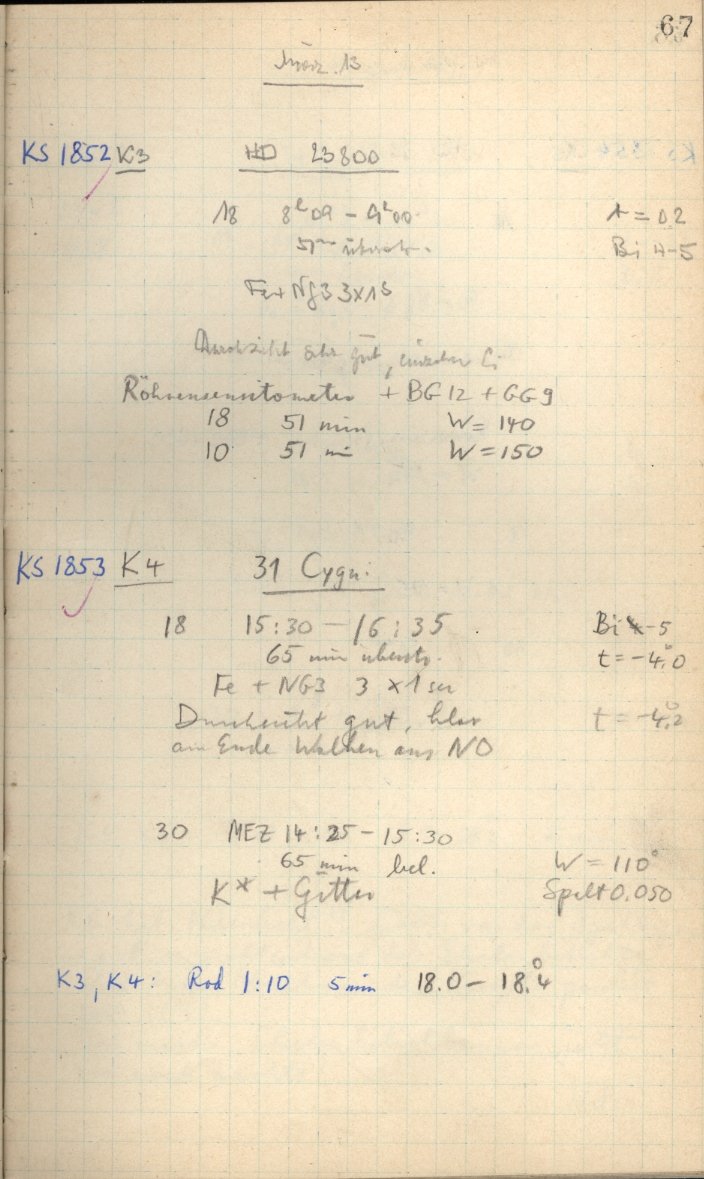 67
März 13
KS 1852 K3 HD 23800
18 8h09 - 9h00 t = 0.2
51m überstr. Bi A-5
Fe + NG3 3x1s
Durchsicht sehr gut, einzelne Ci
Röhrensensitometer + BG 12 + GG9
18 51 min W = 140
10 51 mi W = 150
KS 1853 K4 31 Cygni
18 15:30 - 16:35 Bi -5
65 min überstr. t = -4.°0
Fe + NG3 3 x 1 sec
Durchsicht gut, klar t = -4.°2
am Ende Wolken aus NO
30 MEZ 14:25 - 15:30
65 min bel. W = 110°
K* + Gitter Spalt 0.050
K3, K4: Rod 1:10 5 min 18.0 - 18.°4